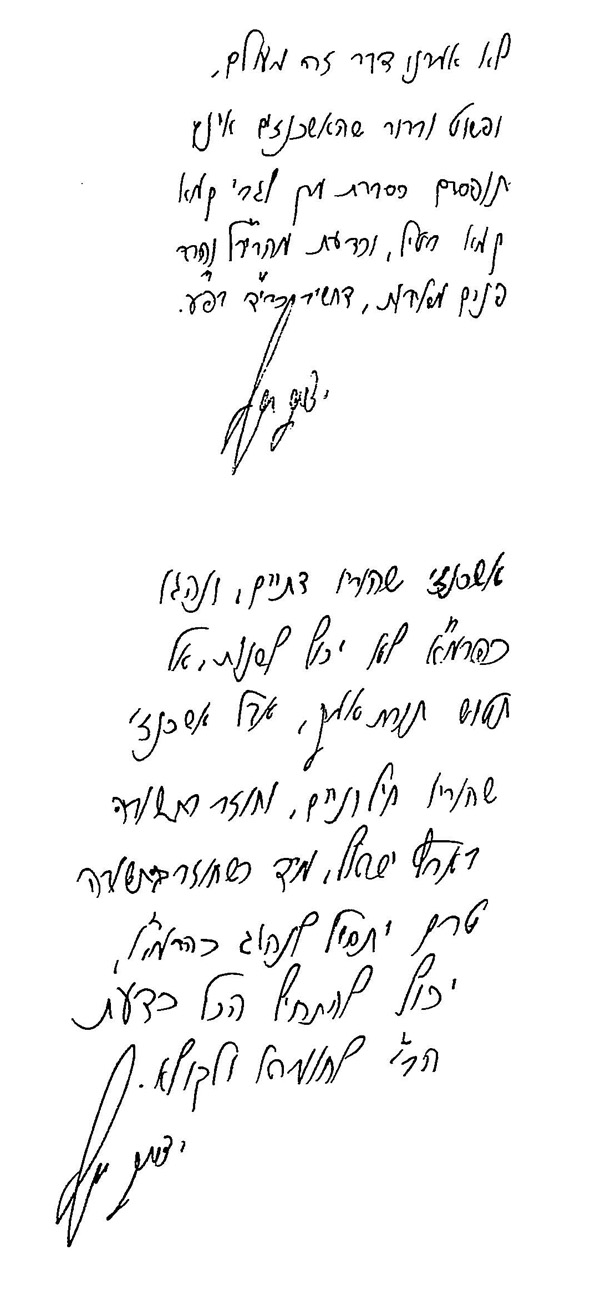 לא אמרנו דבר זה מעולם,
ופשוט וברור שהאשכנזים אינם
תופסים כסברת מרן לגבי קמא
קמא בטיל, וכדעת מהריק"ל והרב
פנים מאירות, דחשיב כבריה
יצחק יוסף
אשכנזי שהוריו דתיים, ונהגו
כהרמ"א לא יכול לשנות, אל
תטוש תורת אמך, אבל אשכנזי
שהוריו חילוניים, וחוזר בתשובה
בארץ ישראל, מיד כשחוזר בתשובה
טרם יתחיל לנהוג כהרמ"א,
יכול להתחיל הכל כדעת
הב"י לחומרא ולקולא.
יצחק יוסף